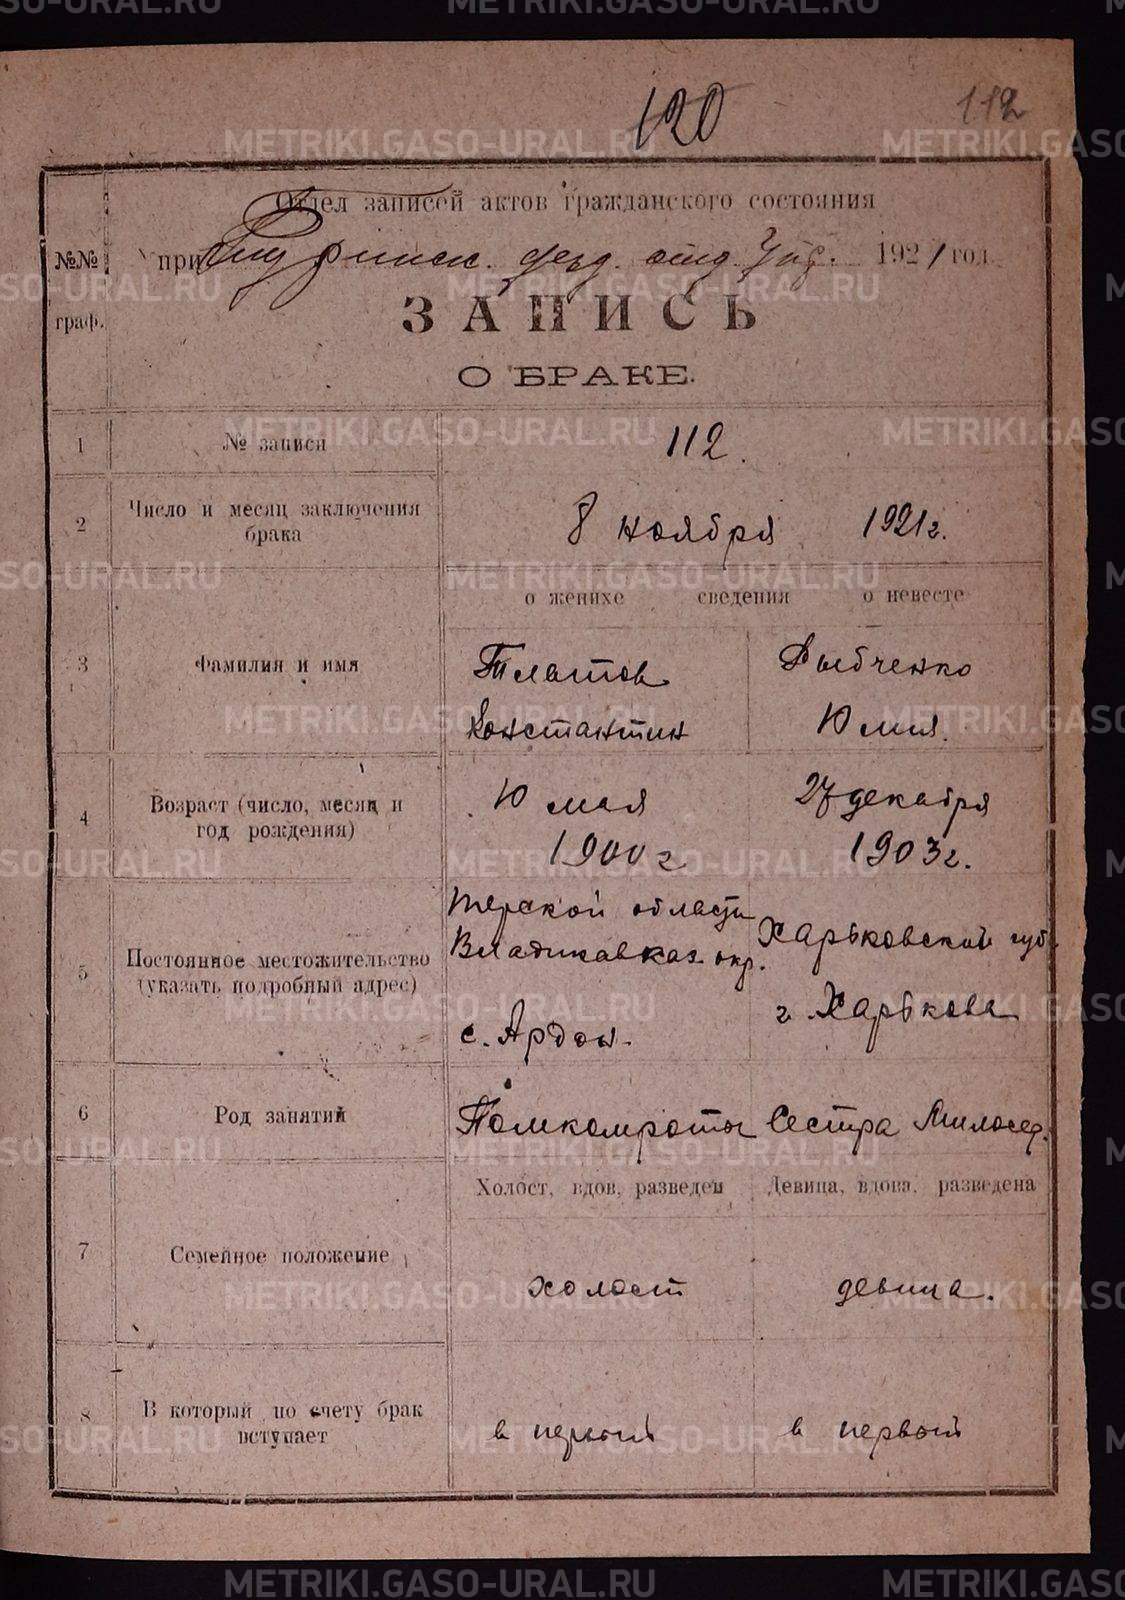 120
112
Отдел записей актов гражданского состояния
№№ граф.
при Туринск. уезд. отд. Упр. 1921 год
ЗАПИСЬ
О БРАКЕ.
1 № записи 112.
2 Число и месяц заключения брака 8 ноября 1921 г.
о женихе сведения о невесте
3 Фамилия и имя
Тлатов
Константин
Рыбченко
Юлия
4 Возраст (число, месяц и год рождения)
10 мая
1900 г
27 декабря
1903 г.
5 Постоянное местожительство (указать подробный адрес)
Терской области
Владикавказ. окр.
с. Ардон.
Харьковской губ.
г. Харькова
6 Род занятий
Помкомроты
Сестра Милосер.
Холост, вдов, разведен
Девица, вдова, разведена
7 Семейное положение
холост
девица.
8 В который по счету брак вступает
в первый
в первый
METRIKI.GASO-URAL.RU